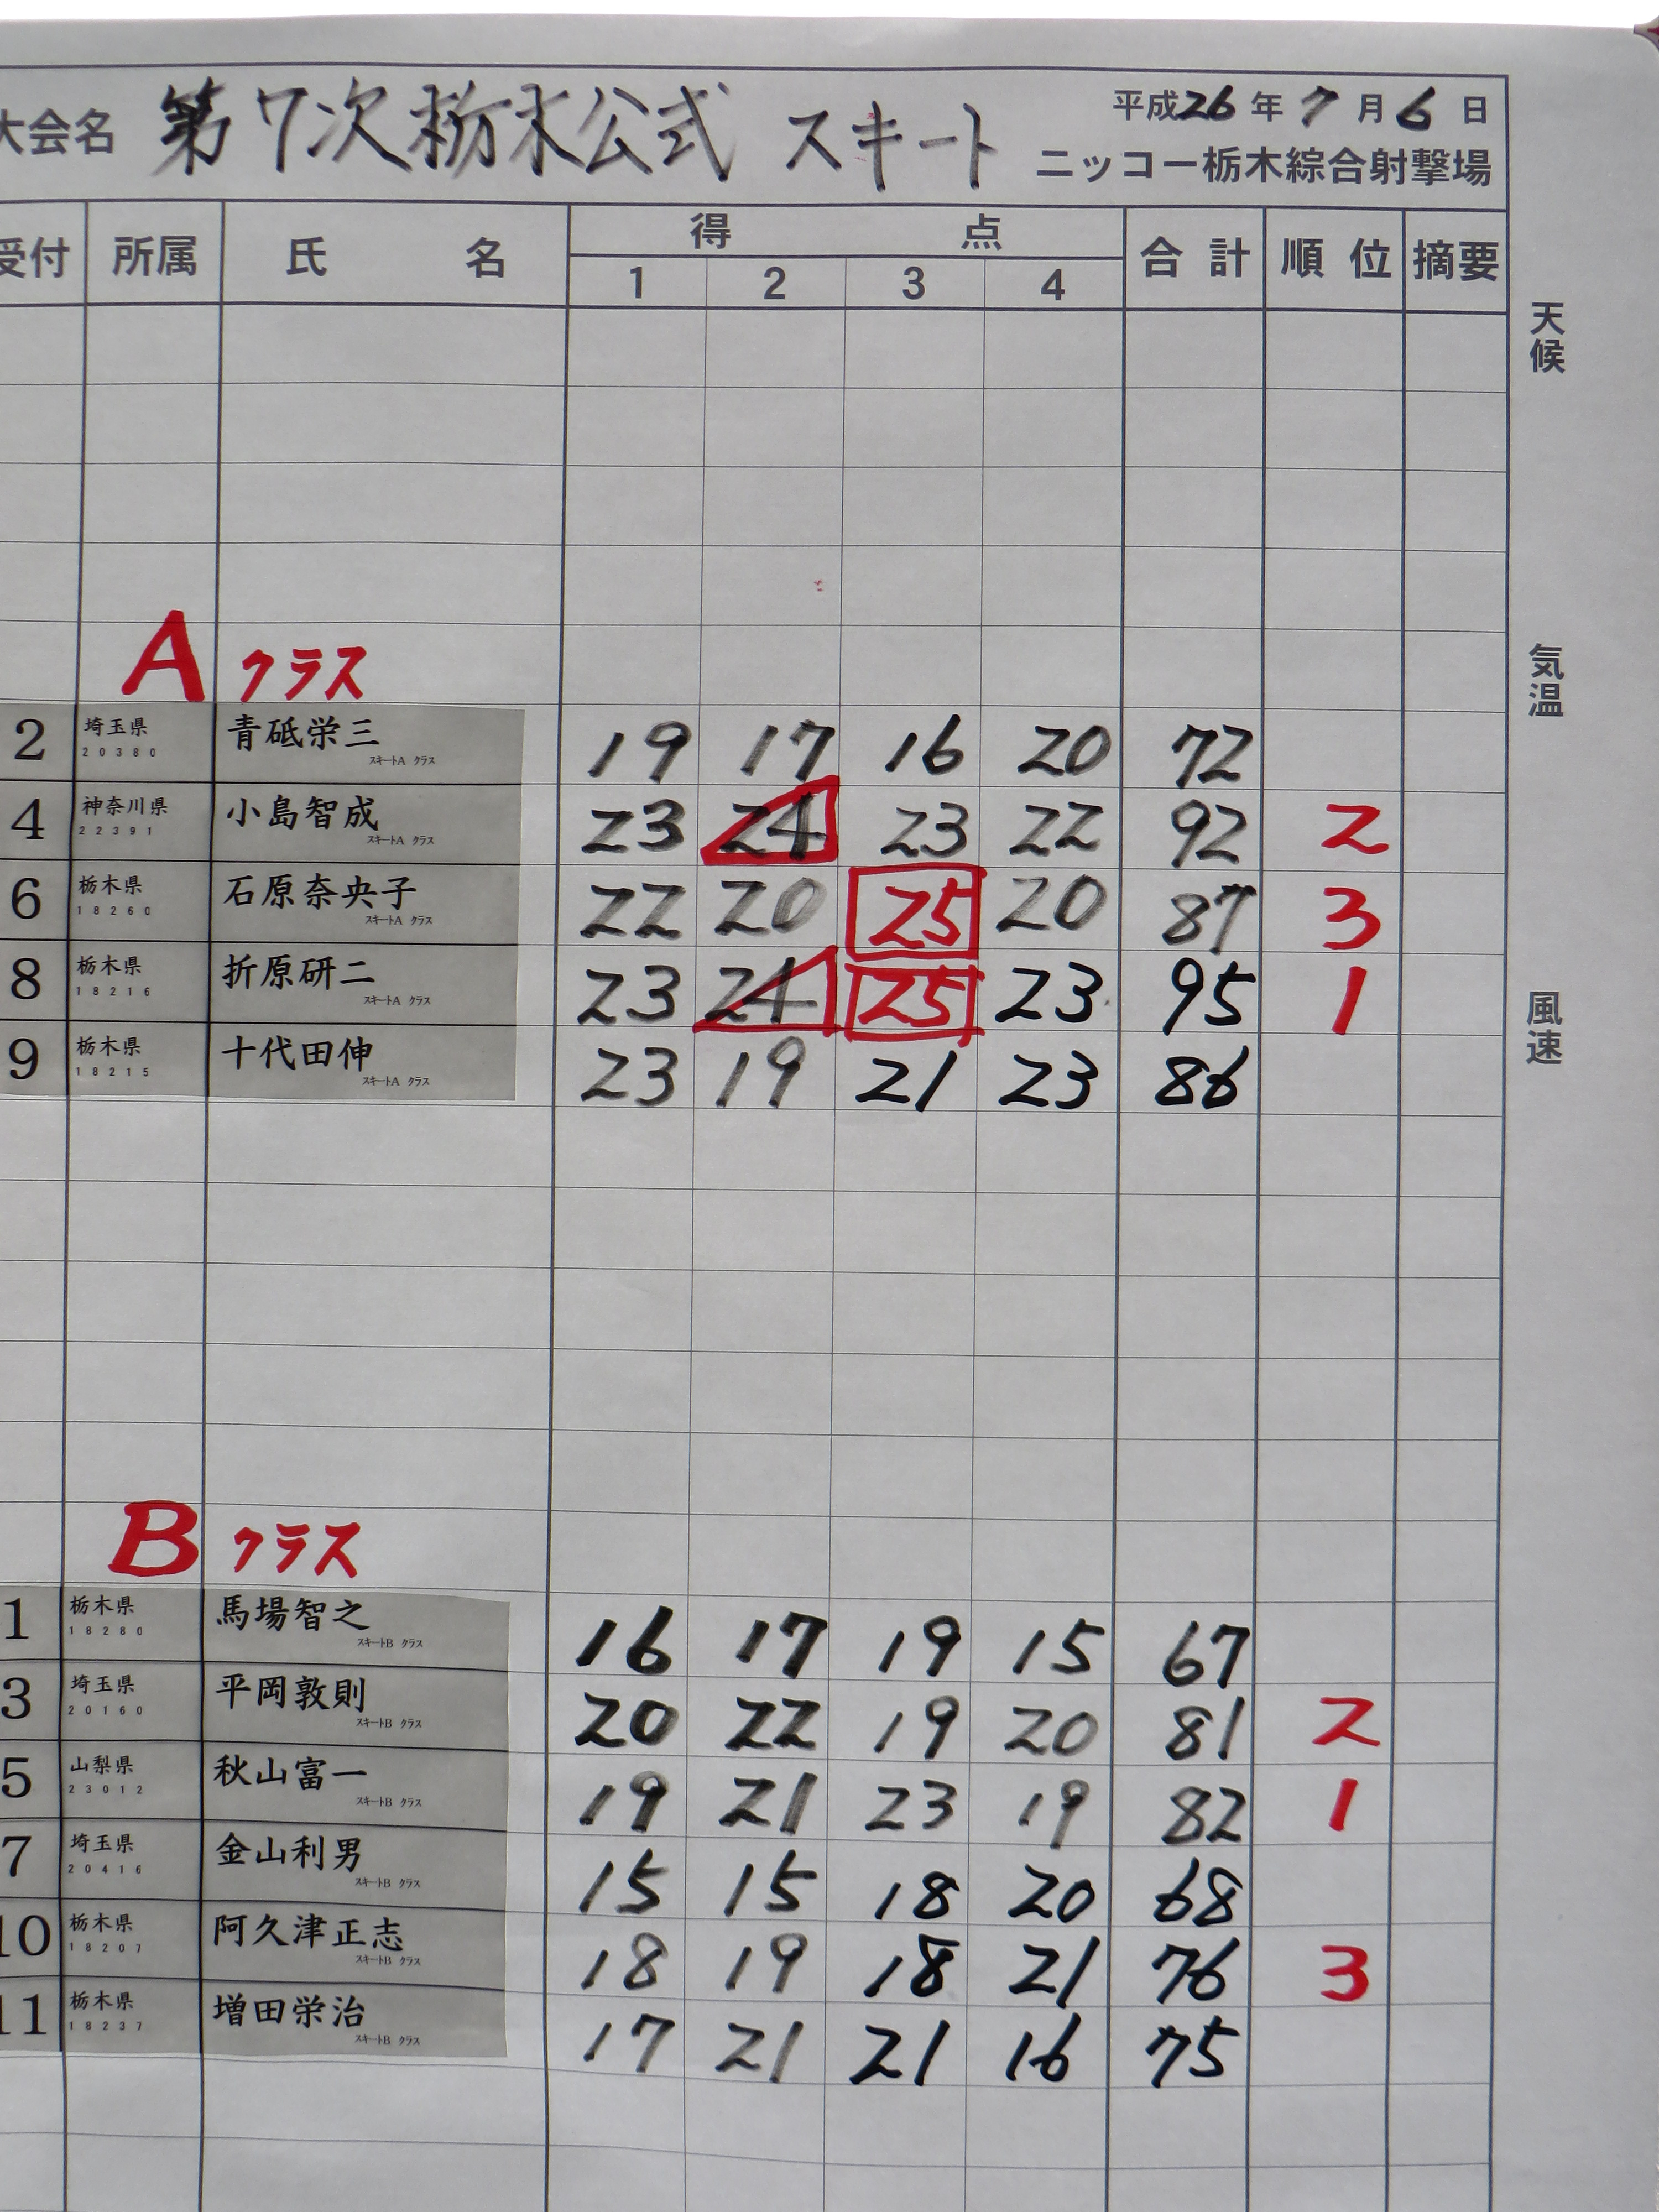 大会名 第7次栃木公式 スキート 平成26年7月6日
ニッコー栃木綜合射撃場
受付 所属 氏名 得点 合計 順位 摘要
1 2 3 4
天候
気温
風速
Aクラス
2 埼玉県 20380 青砥栄三 スキートA クラス 19 17 16 20 72
4 神奈川県 22391 小島智成 スキートA クラス 23 24 23 22 92 2
6 栃木県 18260 石原奈央子 スキートA クラス 22 20 25 20 87 3
8 栃木県 18216 折原研二 スキートA クラス 23 24 25 23 95 1
9 栃木県 18215 十代田伸 スキートA クラス 23 19 21 23 86
Bクラス
1 栃木県 18280 馬場智之 スキートB クラス 16 17 19 15 67
3 埼玉県 20160 平岡敦則 スキートB クラス 20 22 19 20 81 2
5 山梨県 23012 秋山富一 スキートB クラス 19 21 23 19 82 1
7 埼玉県 20416 金山利男 スキートB クラス 15 15 18 20 68
10 栃木県 18207 阿久津正志 スキートB クラス 18 19 18 21 76 3
11 栃木県 18237 増田栄治 スキートB クラス 17 21 21 16 75